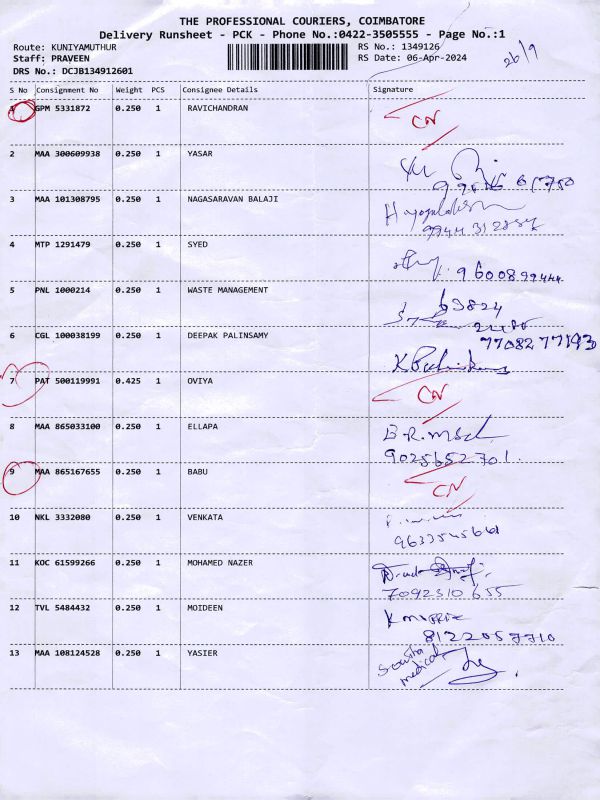 THE PROFESSIONAL COURIERS, COIMBATORE
Delivery Runsheet - PCK - Phone No.:0422-3505555 - Page No.:1
Route: KUNIYAMUTHUR RS No.: 1349126
Staff: PRAVEEN RS Date: 06-Apr-2024 26/9
DRS No.: DCJB134912601
S No Consignment No Weight PCS Consignee Details Signature
1 GPM 5331872 0.250 1 RAVICHANDRAN CN
2 MAA 300609938 0.250 1 YASAR
3 MAA 101308795 0.250 1 NAGASARAVAN BALAJI
4 MTP 1291479 0.250 1 SYED
9600899444
5 PNL 1000214 0.250 1 WASTE MANAGEMENT
63824
6 CGL 100038199 0.250 1 DEEPAK PALINSAMY
7708277193
7 PAT 500119991 0.425 1 OVIYA CN
8 MAA 865033100 0.250 1 ELLAPA
9025652701.
9 MAA 865167655 0.250 1 BABU CN
10 NKL 3332080 0.250 1 VENKATA
11 KOC 61599266 0.250 1 MOHAMED NAZER
7092310655
12 TVL 5484432 0.250 1 MOIDEEN
8122057710
13 MAA 108124528 0.250 1 YASIER
medical